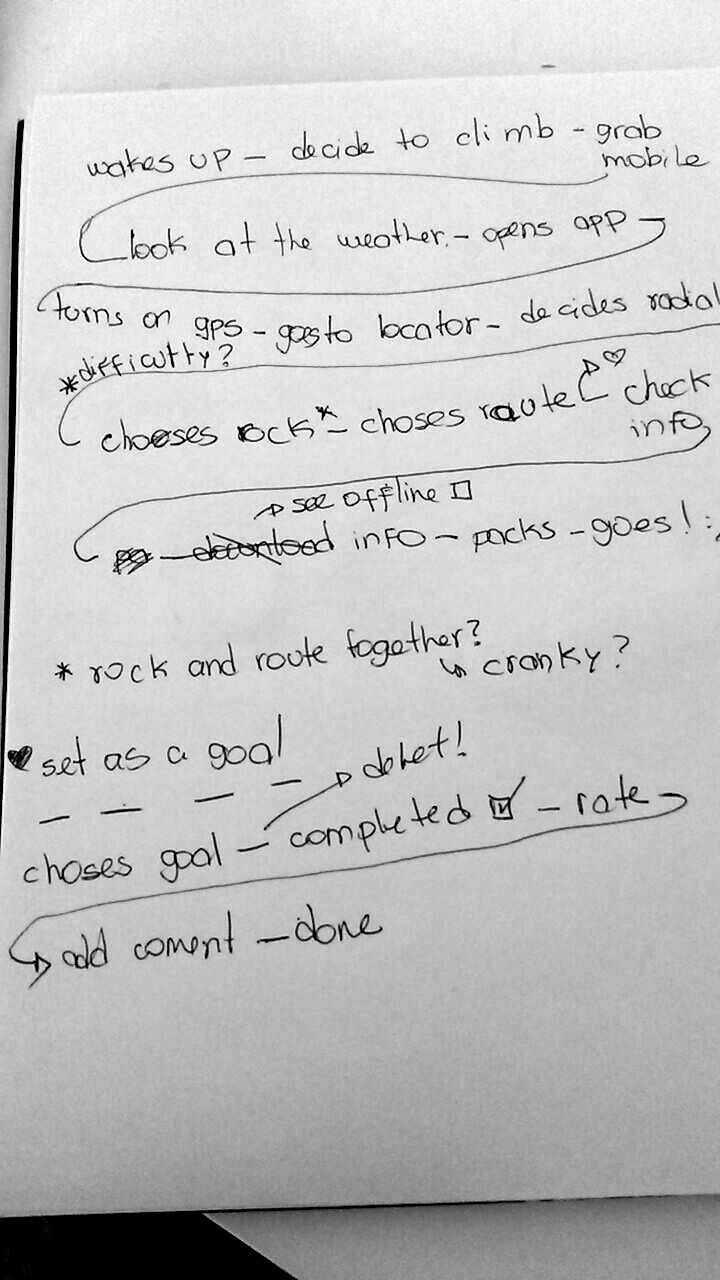 wakes up – decide to climb – grab
mobile
look at the weather – opens app –
turns on gps – goes to locator – decides radial
*difficulty?
chooses rock* – choses route ♡ check
info,
→ see offline □
download info – packs – goes! :
* rock and route together?
↳ cranky?
♥ set as a goal
– – – –
→ delet!
choses goal – completed ☑ – rate
→ add coment – done